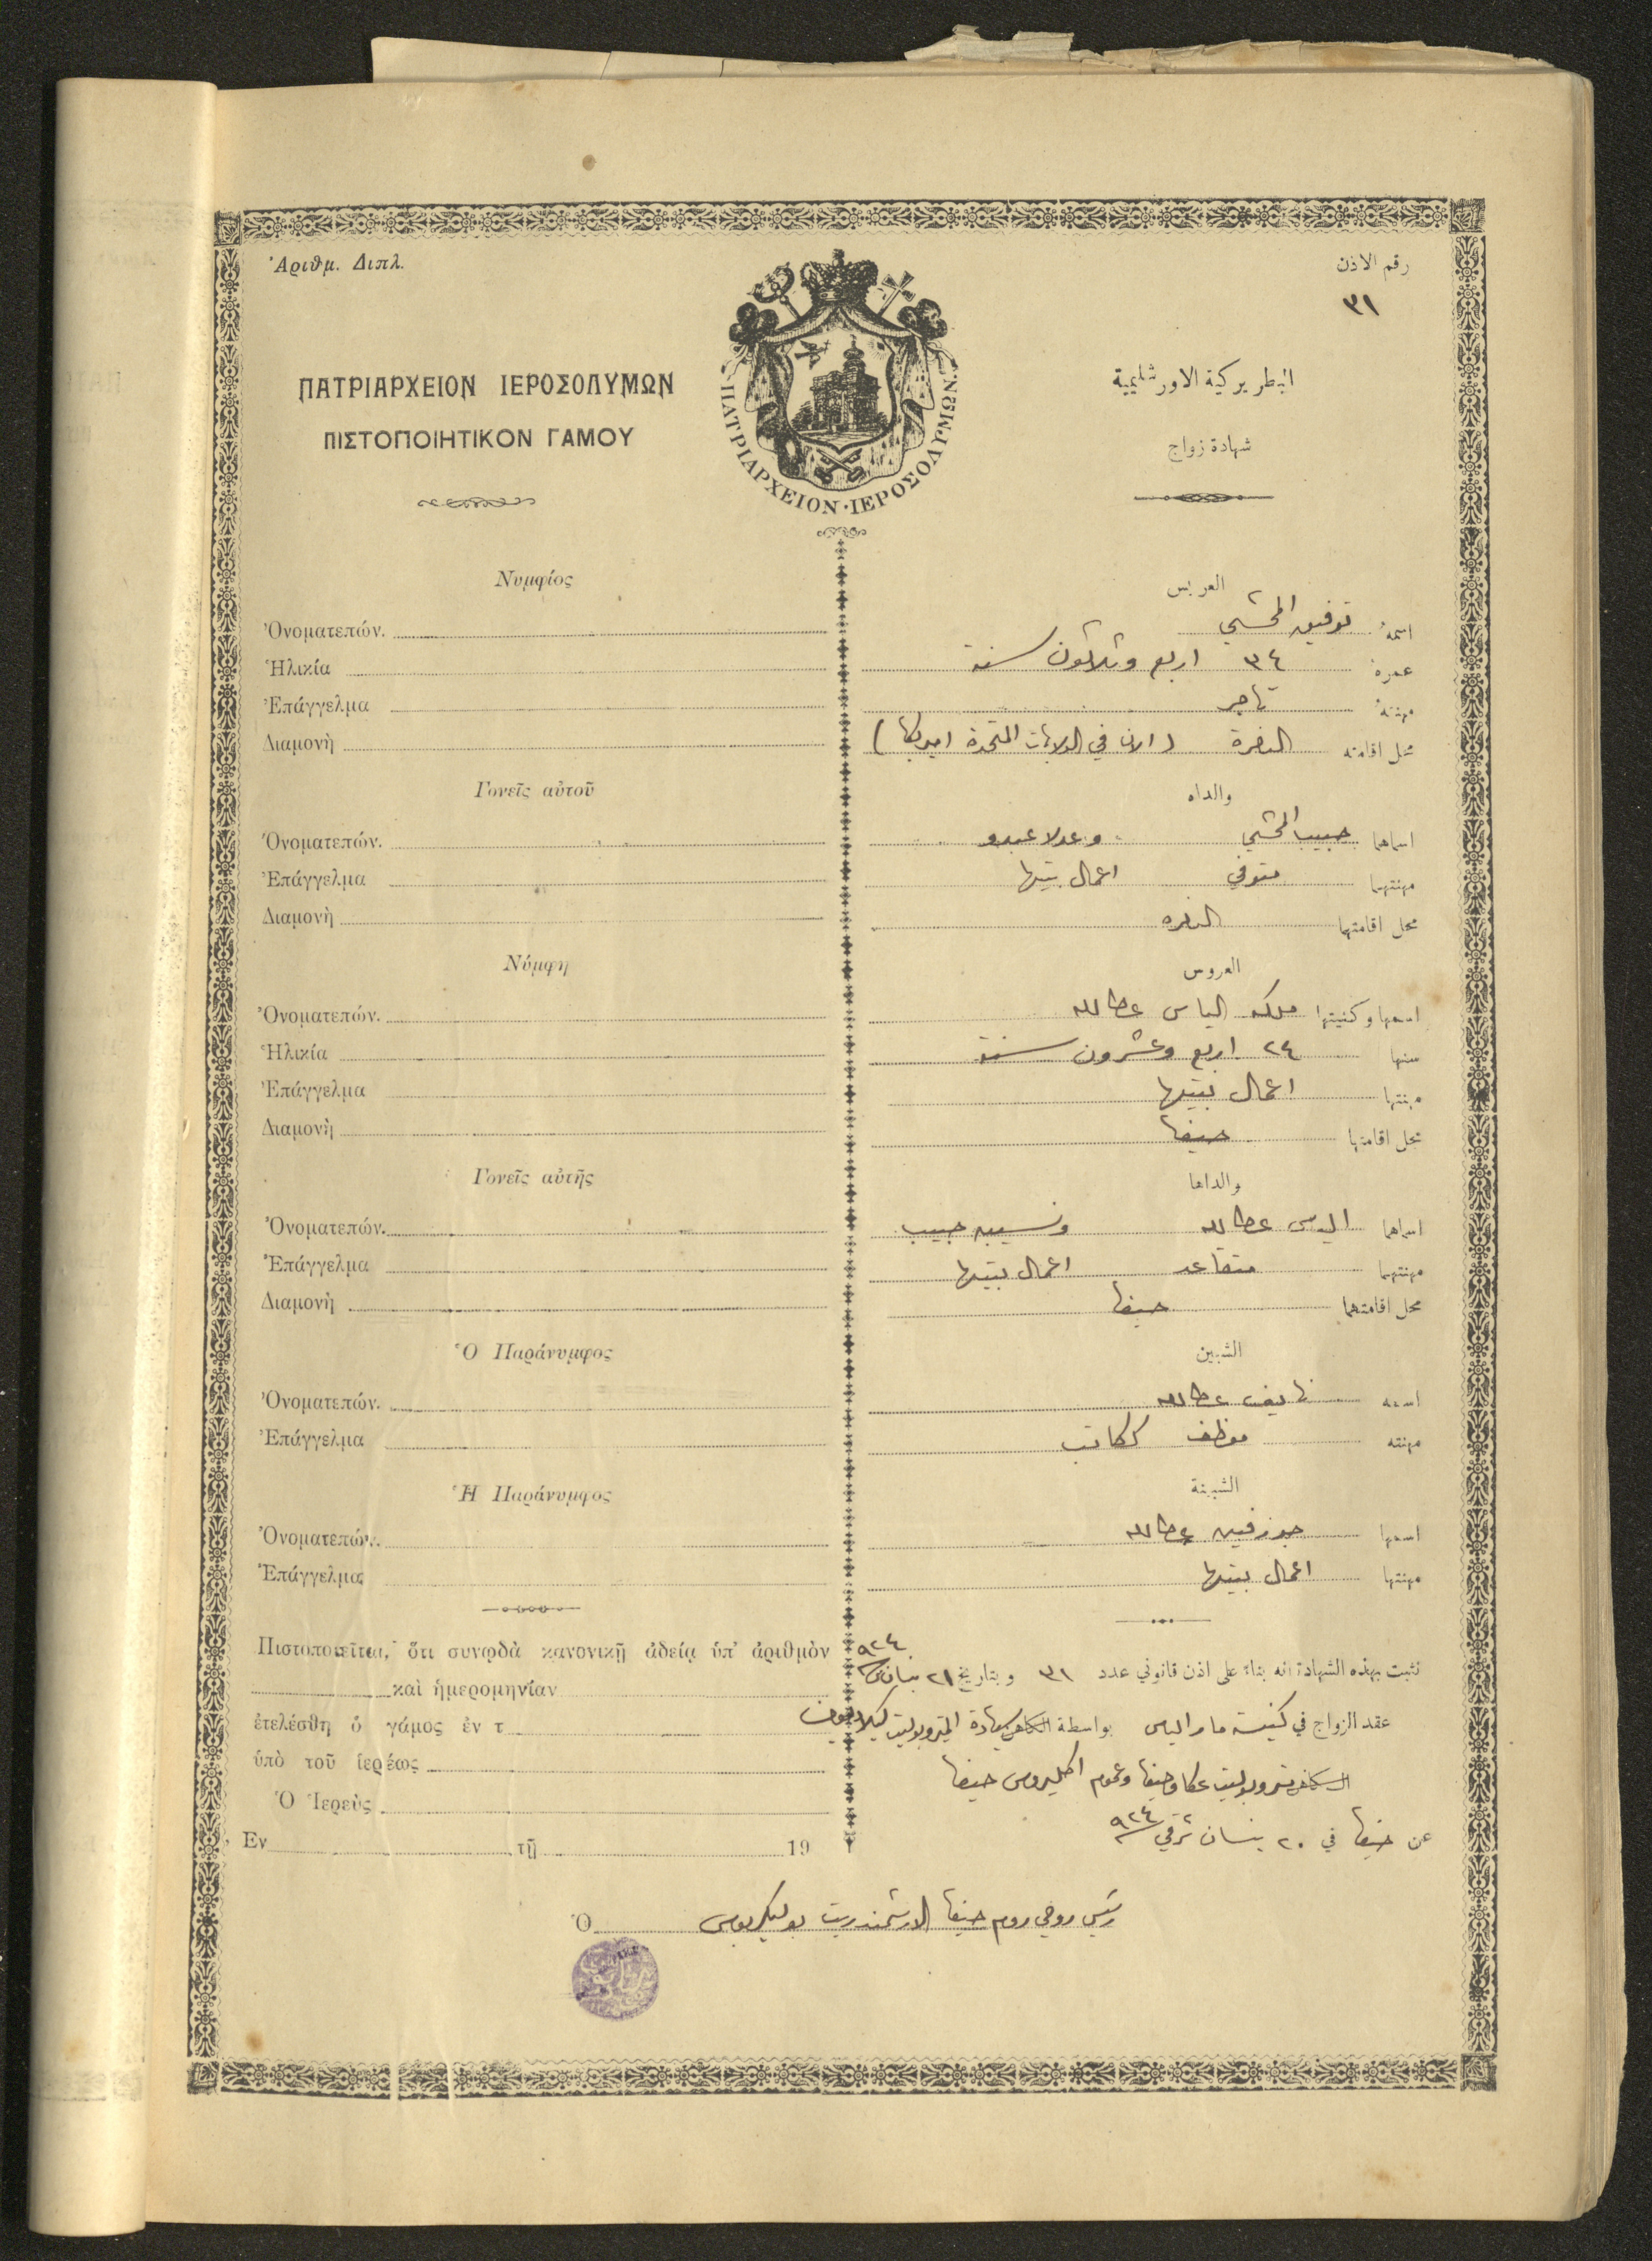 Ἀριθμ. Διπλ.
رقم الاذن
٣١
ΠΑΤΡΙΑΡΧΕΙΟΝ ΙΕΡΟΣΟΛΥΜΩΝ
البطريركية الاورشليمية
ΠΙΣΤΟΠΟΙΗΤΙΚΟΝ ΓΑΜΟΥ
شهادة زواج
ΠΑΤΡΙΑΡΧΕΙΟΝ·ΙΕΡΟΣΟΛΥΜΩΝ.
Νυμφίος
Ὀνοματεπών.
Ἡλικία
Ἐπάγγελμα
Διαμονὴ
Γονεῖς αὐτοῦ
Ὀνοματεπών.
Ἐπάγγελμα
Διαμονὴ
Νύμφη
Ὀνοματεπών.
Ἡλικία
Ἐπάγγελμα
Διαμονὴ
Γονεῖς αὐτῆς
Ὀνοματεπών.
Ἐπάγγελμα
Διαμονὴ
Ὁ Παράνυμφος
Ὀνοματεπών.
Ἐπάγγελμα
Ἡ Παράνυμφος
Ὀνοματεπών.
Ἐπάγγελμα
Πιστοποιεῖται, ὅτι συνῳδὰ κανονικῇ ἀδείᾳ ὑπ' ἀριθμὸν
καὶ ἡμερομηνίαν
ἐτελέσθη ὁ γάμος ἐν τ
ὑπὸ τοῦ ἱερέως
Ὁ Ἱερεὺς
Ἐν τῇ 19
العريس
اسمهُ توفيق
عمره ٣٤ اربع وثلاثون سنة
مهنتهُ تاجر
محل اقامته الناصرة (الان في الولايات المتحدة اميركا)
والداه
اسماهما حبيب وعدلا عبدو
مهنتهما متوفي اعمال بيتها
محل اقامتهما الناصره
العروس
اسمها وكنيتها ملكه الياس عطالله
سنها ٢٤ اربع وعشرون سنة
مهنتها اعمال بيتها
محل اقامتها حيفا
والداها
اسماهما الياس عطالله ونسيبه حبيب
مهنتهما متقاعد اعمال بيتها
محل اقامتهما حيفا
الشبين
اسمه نايف عطالله
مهنته موظف ككاتب
الشبينة
اسمها جوزفين عطالله
مهنتها اعمال بيتها
نثبت بهذه الشهادة انه بناءً على اذن قانوني عدد ٣١ وبتاريخ ٢١ نيسان ٩٢٤
عقد الزواج في كنيسة مار الياس بواسطة الكاهن سيادة المتروبوليت
الكاهن متروبوليت عكا وحيفا وعموم اكليروس حيفا
عن حيفا في ٢٠ نيسان شرقي ٩٢٤
Ὁ رئيس روحي روم حيفا الارشمندريت بوليكربوس